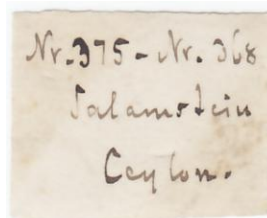 Nr. 375 - Nr. 368
Salamstein
Ceylon.